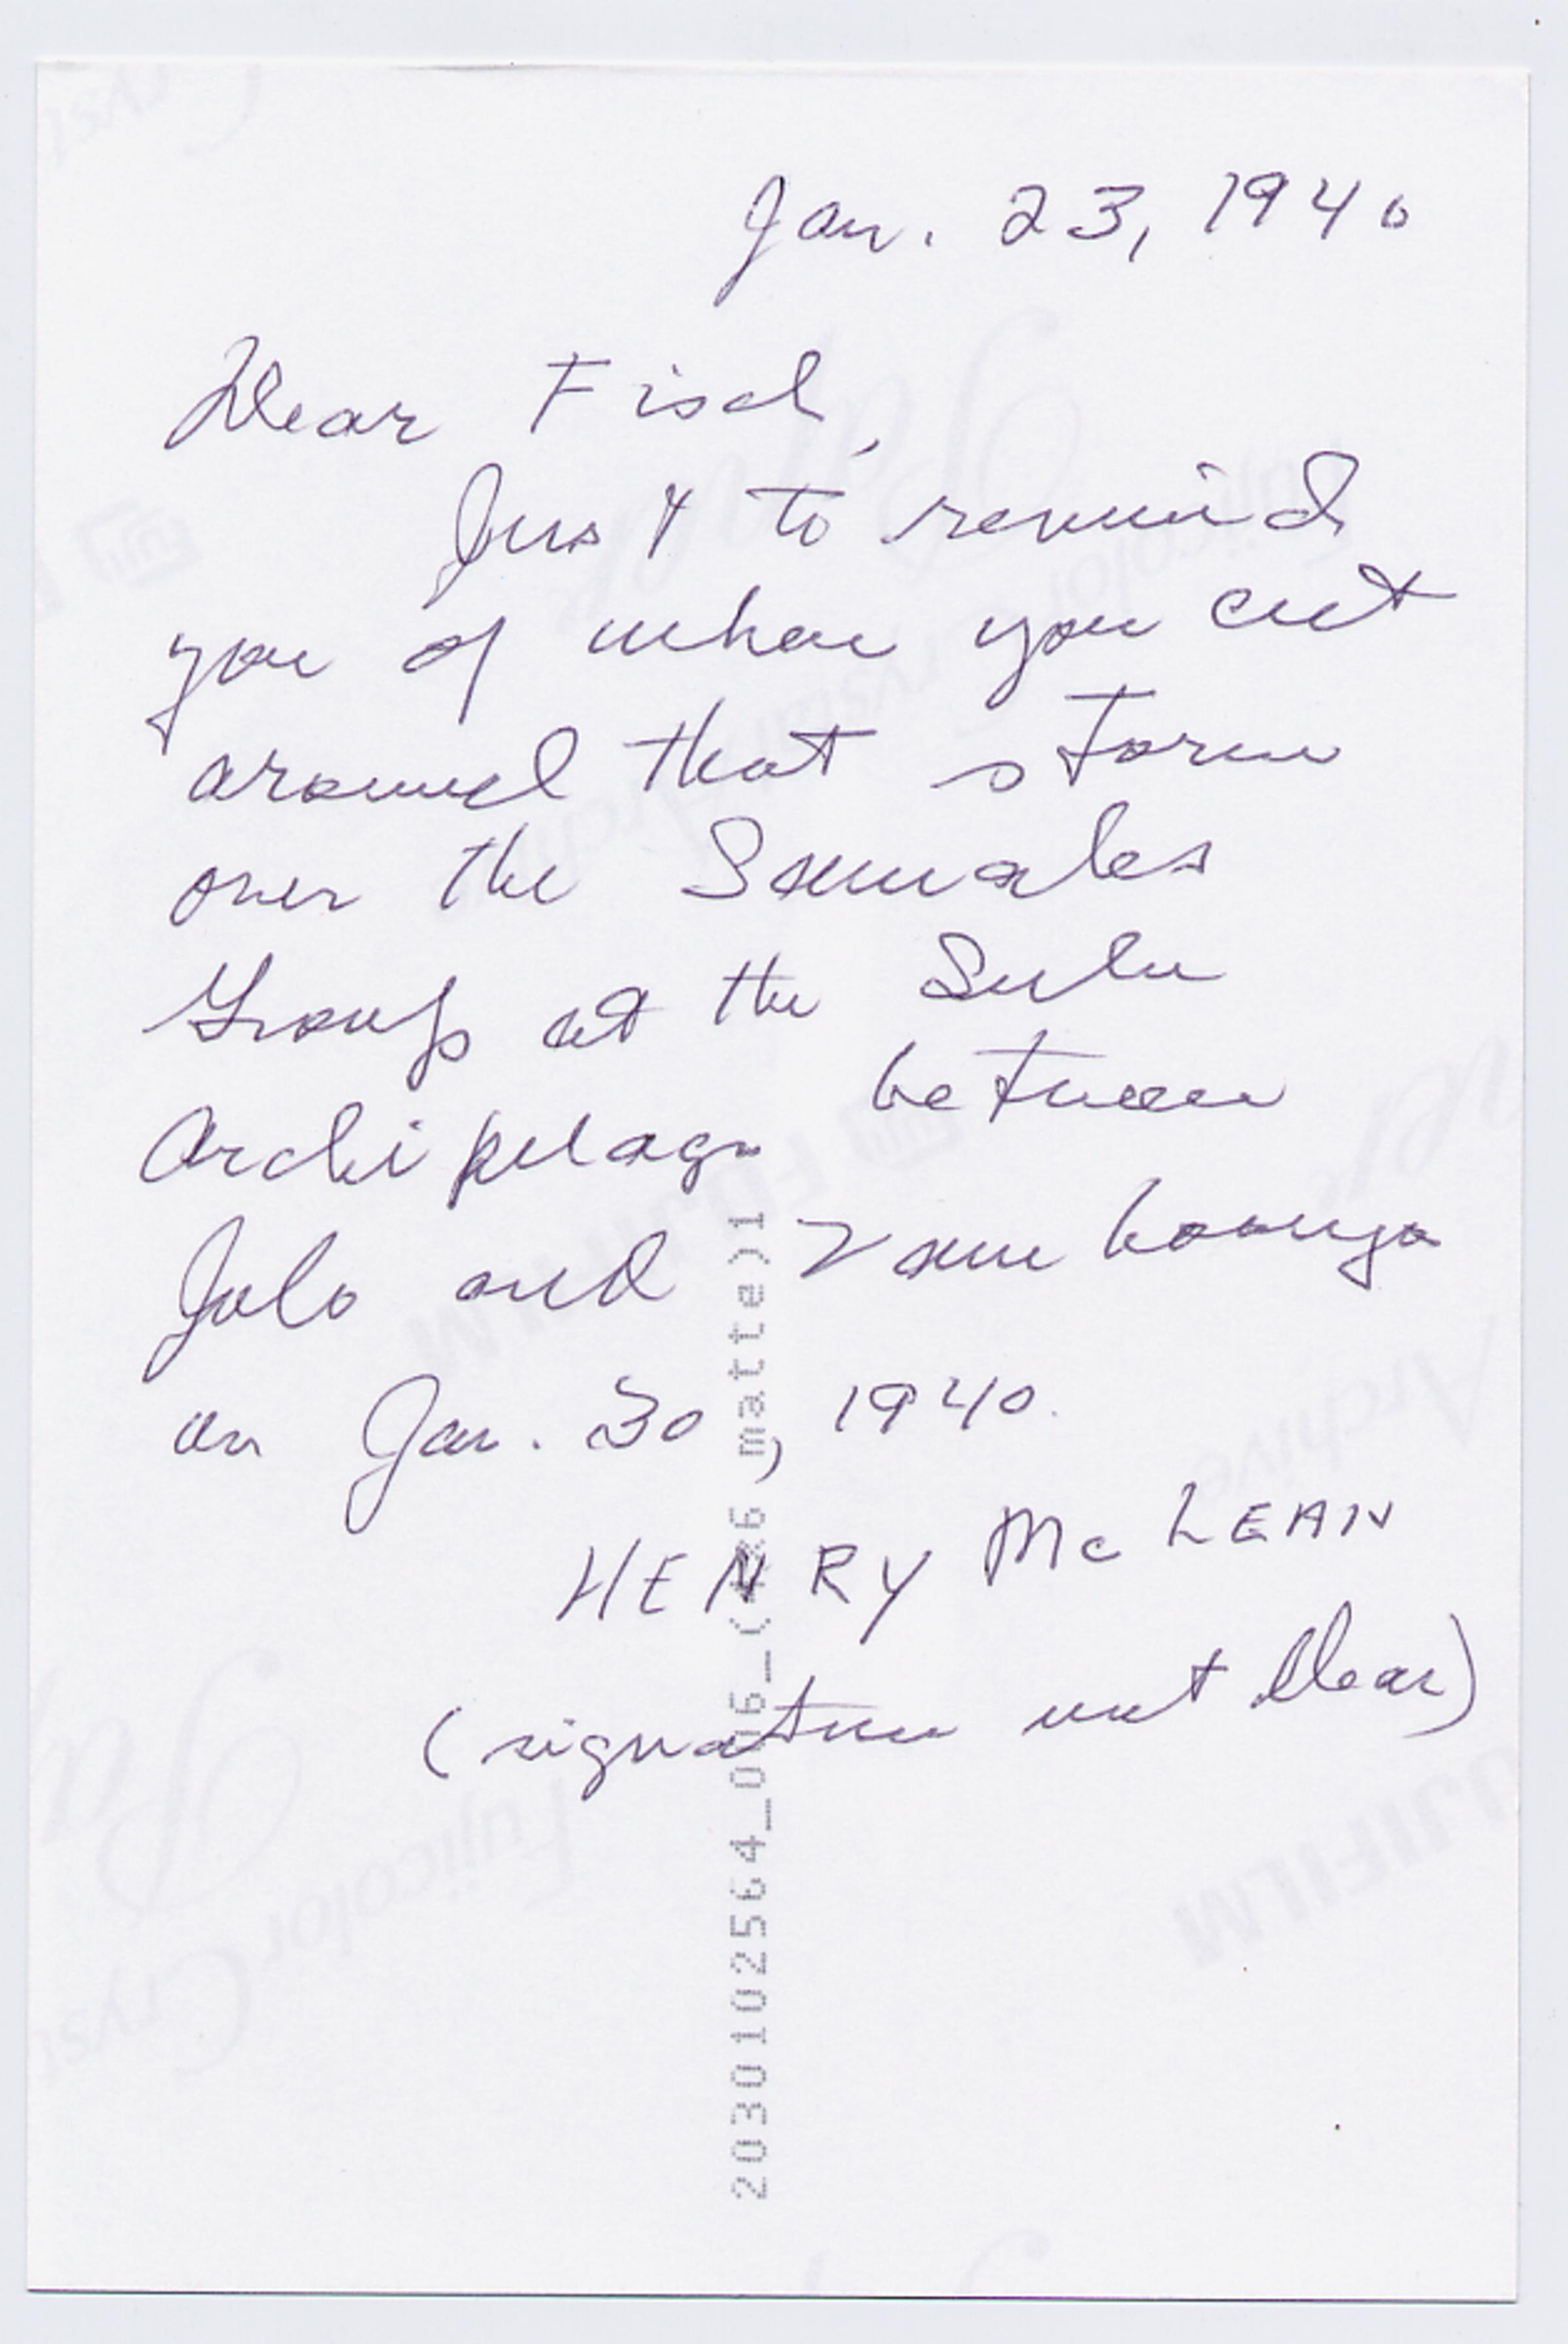 Jan. 23, 1940
Dear Fisch,
Just to remind
you of when you cut
around that storm
over the Samales
Group at the Sulu
Archipelago between
Jolo and Zamboanga
on Jan. 30, 1940.
HENRY McLEAN
(signature not clear)